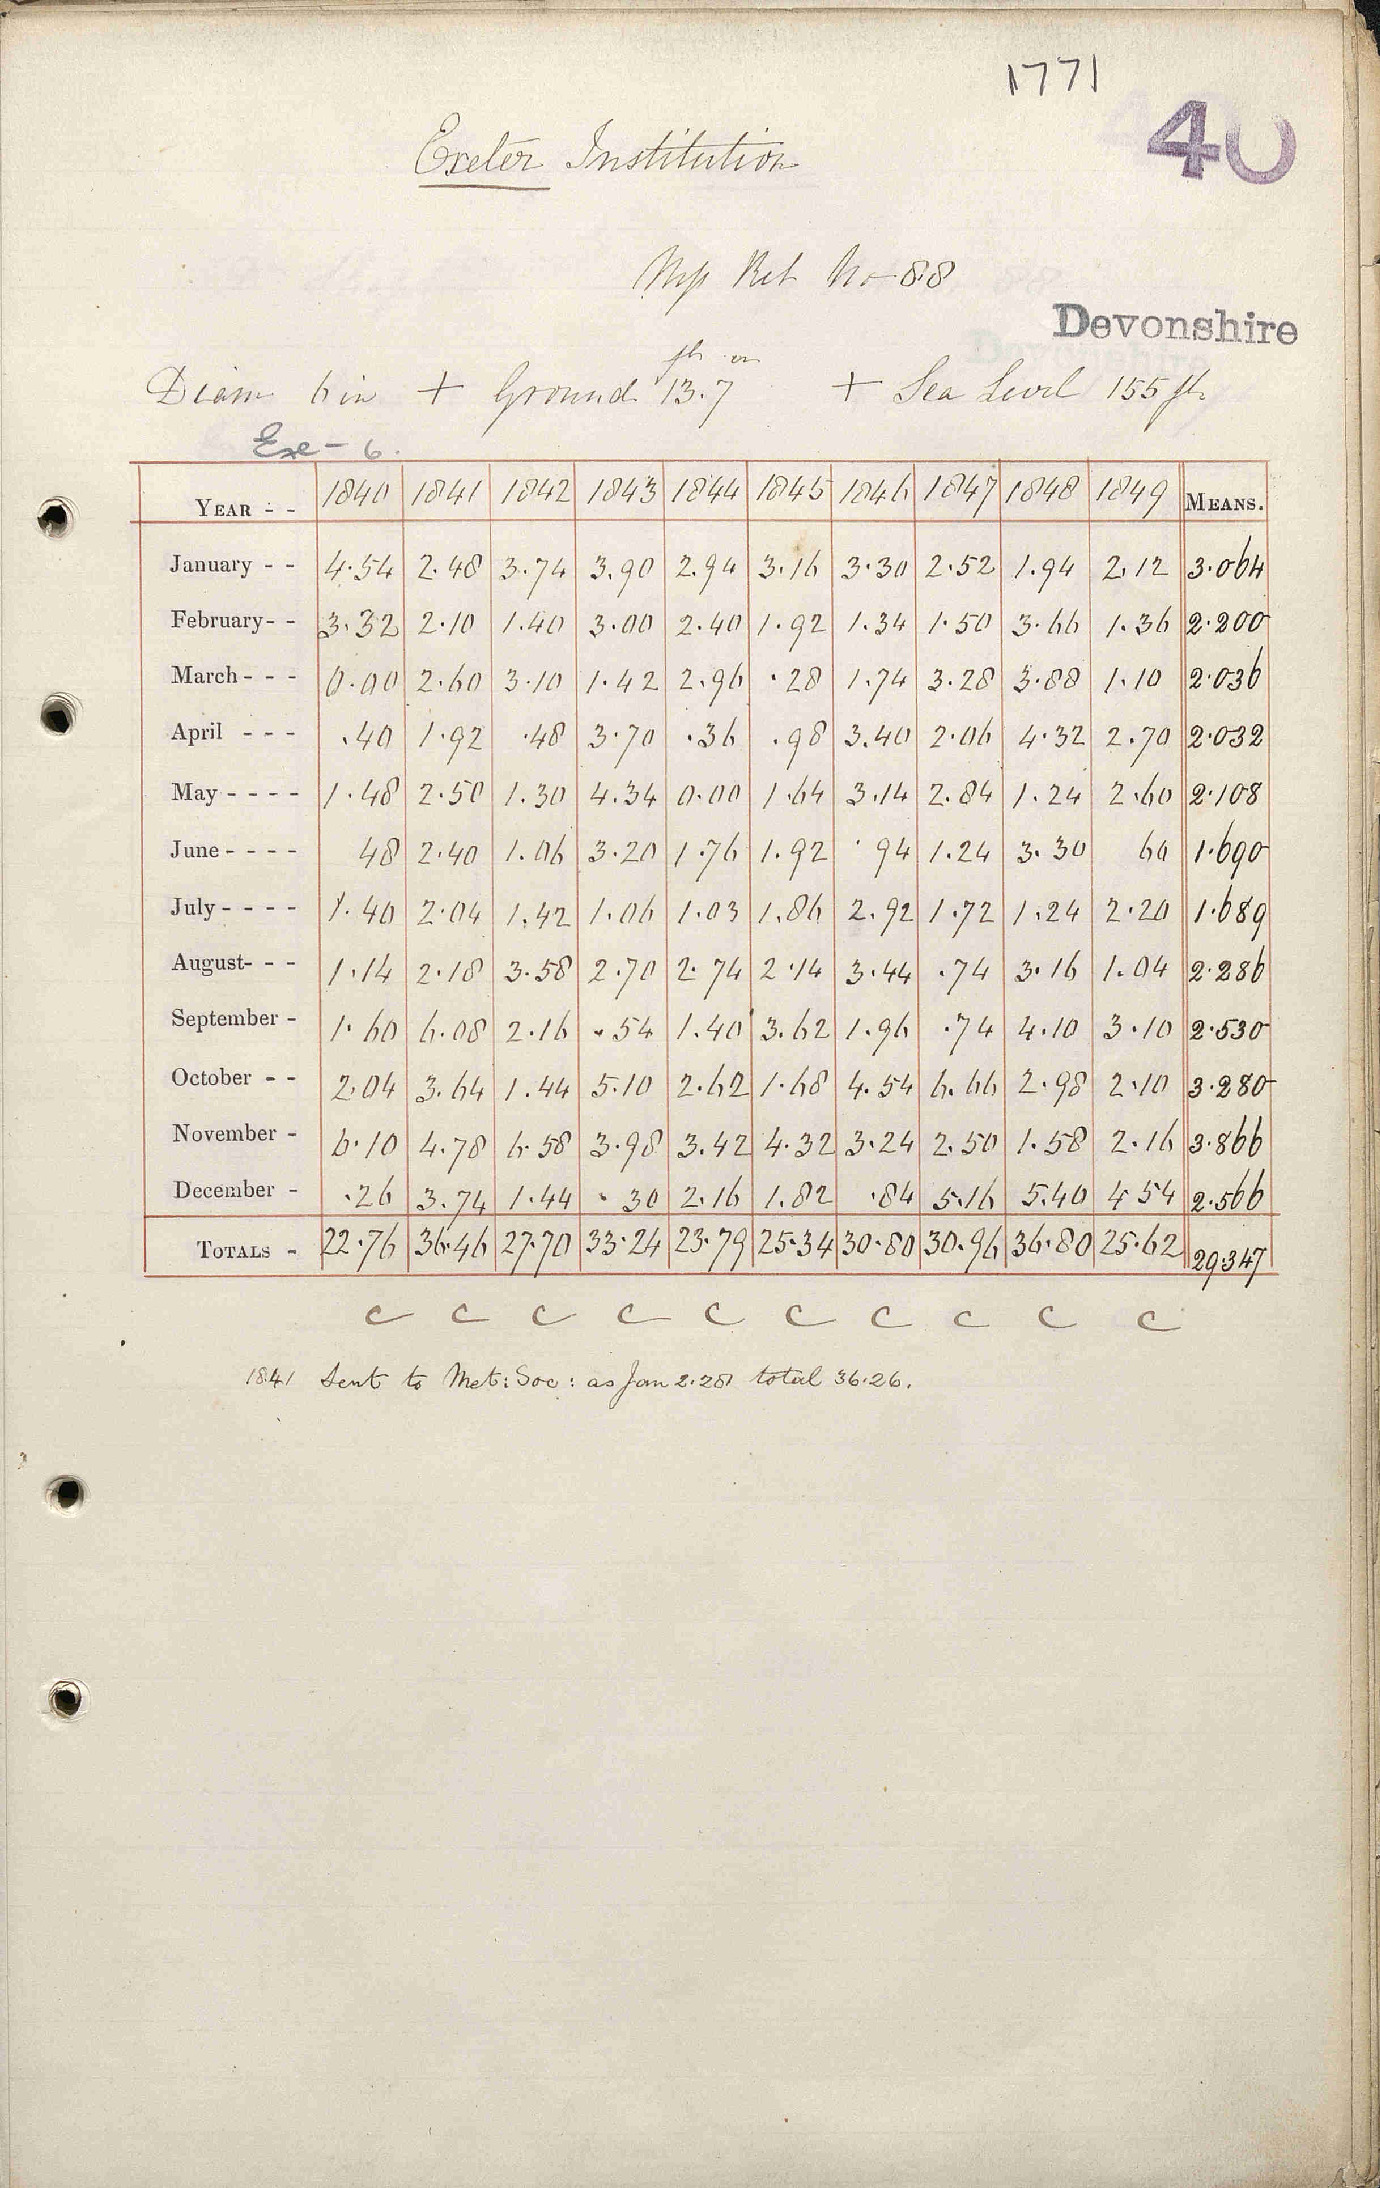 1771
40
Exeter Institution
Mss Ret No 88
Devonshire
ft in
Diam 6 in + Ground 13.7 + Sea Level 155 ft
Exe - 6.
YEAR - - 1840 1841 1842 1843 1844 1845 1846 1847 1848 1849 MEANS.
January - - 4.54 2.48 3.74 3.90 2.94 3.16 3.30 2.52 1.94 2.12 3.064
February - - 3.32 2.10 1.40 3.00 2.40 1.92 1.34 1.50 3.66 1.36 2.200
March - - - 0.00 2.60 3.10 1.42 2.96 .28 1.74 3.28 3.88 1.10 2.036
April - - - .40 1.92 .48 3.70 .36 .98 3.40 2.06 4.32 2.70 2.032
May - - - - 1.48 2.50 1.30 4.34 0.00 1.64 3.14 2.84 1.24 2.60 2.108
June - - - - 48 2.40 1.06 3.20 1.76 1.92 .94 1.24 3.30 60 1.690
July - - - - 1.40 2.04 1.42 1.06 1.03 1.86 2.92 1.72 1.24 2.20 1.689
August - - - 1.14 2.18 3.58 2.70 2.74 2.14 3.44 .74 3.16 1.04 2.286
September - 1.60 6.08 2.16 .54 1.40 3.62 1.96 .74 4.10 3.10 2.530
October - - 2.04 3.64 1.44 5.10 2.62 1.68 4.54 6.66 2.98 2.10 3.280
November - 6.10 4.78 6.58 3.98 3.42 4.32 3.24 2.50 1.58 2.16 3.866
December - .26 3.74 1.44 .30 2.16 1.82 .84 5.16 5.40 4.54 2.566
TOTALS - 22.76 36.46 27.70 33.24 23.79 25.34 30.80 30.96 36.80 25.62 29.347
c c c c c c c c c c
1841 Sent to Met: Soc: as Jan 2.28 total 36.26.